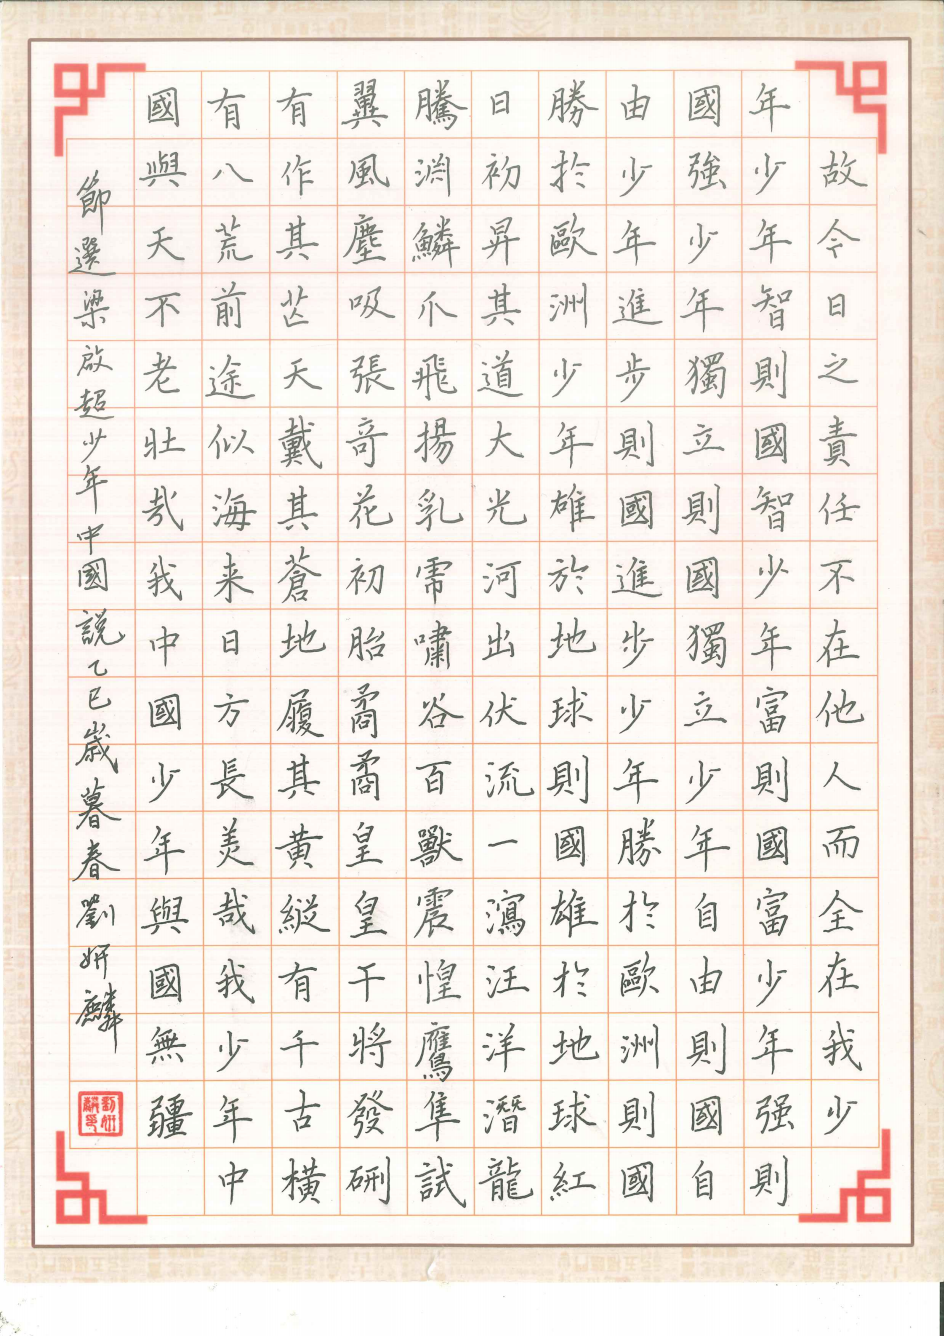 故今日之責任不在他人而全在我少
年少年智則國智少年富則國富少年强則
國強少年獨立則國獨立少年自由則國自
由少年進步則國進步少年勝於歐洲則國
勝於歐洲少年雄於地球則國雄於地球紅
日初昇其道大光河出伏流一瀉汪洋潛龍
騰淵鱗爪飛揚乳虎嘯谷百獸震惶鷹隼試
翼風塵吸張奇花初胎矞矞皇皇干將發硎
有作其芒天戴其蒼地履其黄縱有千古橫
有八荒前途似海来日方長美哉我少年中
國與天不老壯哉我中國少年與國無疆
節選梁啟超少年中國説乙巳歲暮春劉妍麟